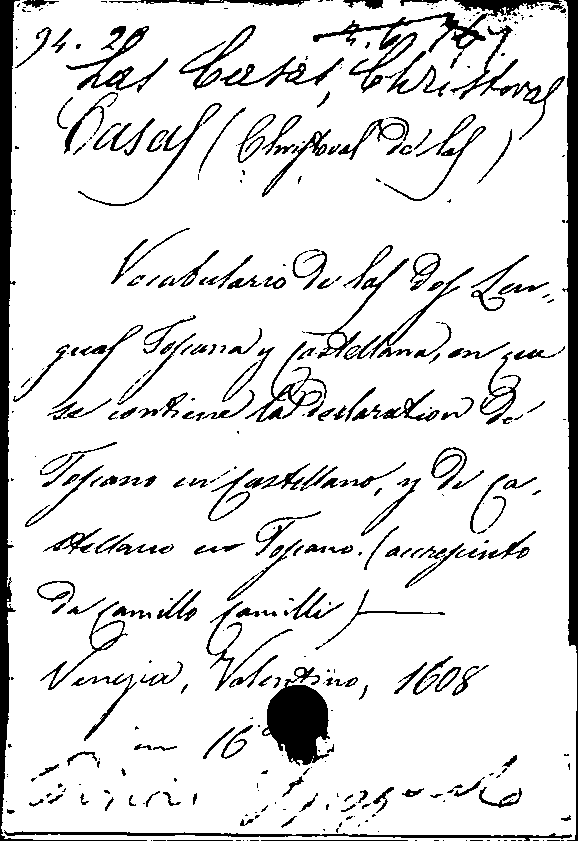 94. 20
Las Casas, Christoval
Casas (Christoval de las)
Vocabulario de las dos Len-
guas Toscana y Castellana, en que
se contiene la declaration de
Toscano en Castellano, y de Ca-
stellano en Toscano. (accresciuto
da Camillo Camilli)
Venezia, Valentino, 1608
in 16°